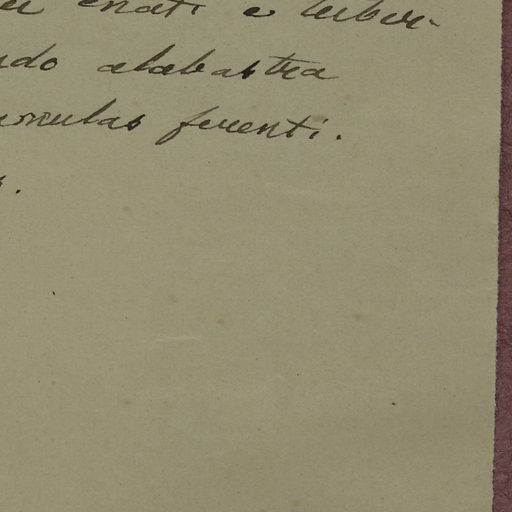 enati e tuber-
ndo alabastra
unculas ferenti.